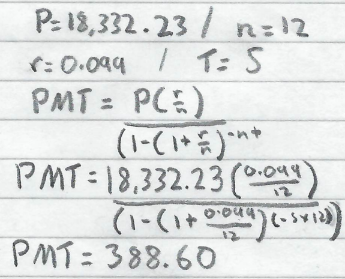 P=18,332.23 / n=12
r=0.099 / T=5
PMT = P(r/n)
(1-(1+r/n)^-nt
PMT = 18,332.23(0.099/12)
(1-(1+0.099/12)^(-5x12))
PMT = 388.60